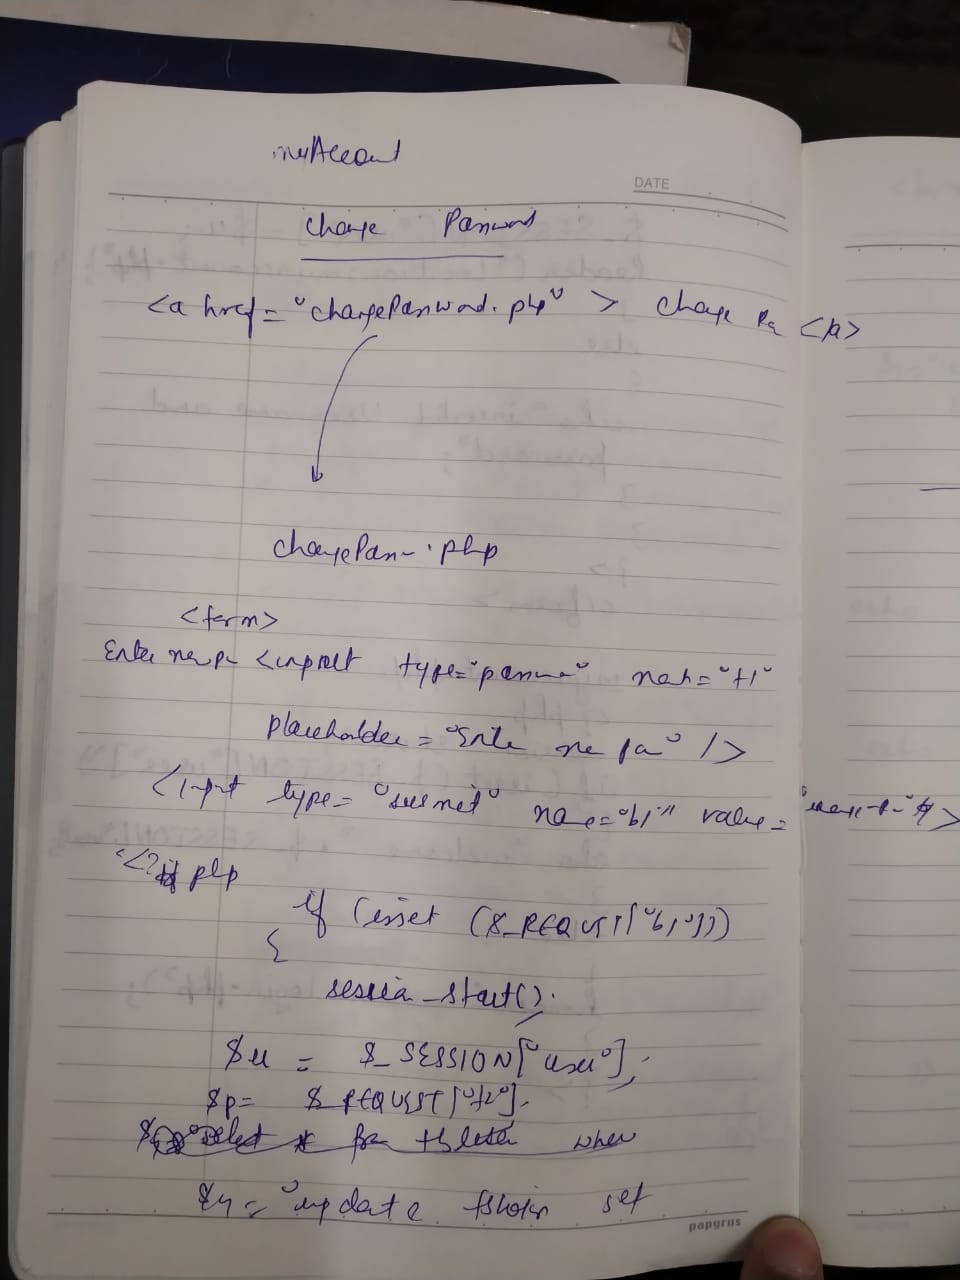 myAccount
DATE
Change Password
<a href="changePassword.php"> change Pa </a>
changePass .php
<form>
Enter new p <input type="password" name="t1"
placeholder = "Enter ne pa" />
<Input type="submit" name="b1" value=
"<? php
if (isset ($_REQUEST["b1"]))
{
session_start();
$u = $_SESSION["user"];
$p= $_REQUEST["t2"].
select * from where
$q = "update set
papyrus